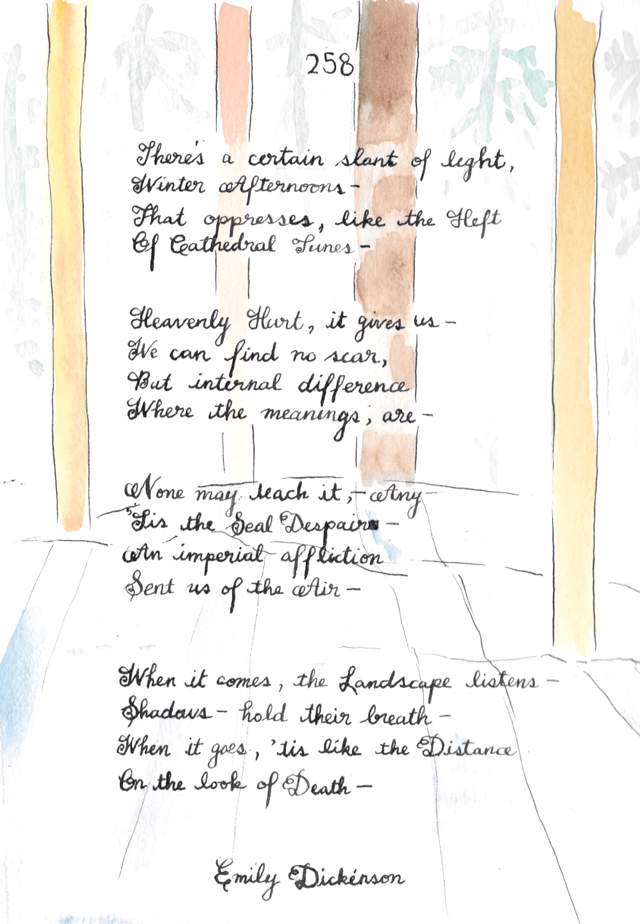 258
There's a certain slant of light,
Winter Afternoons -
That oppresses, like the Heft
Of Cathedral Tunes -
Heavenly Hurt, it gives us -
We can find no scar,
But internal difference
Where the meanings, are -
None may teach it, - Any -
'Tis the Seal Despair -
An imperial affliction
Sent us of the Air -
When it comes, the Landscape listens -
Shadows - hold their breath -
When it goes, 'tis like the Distance
On the look of Death -
Emily Dickinson